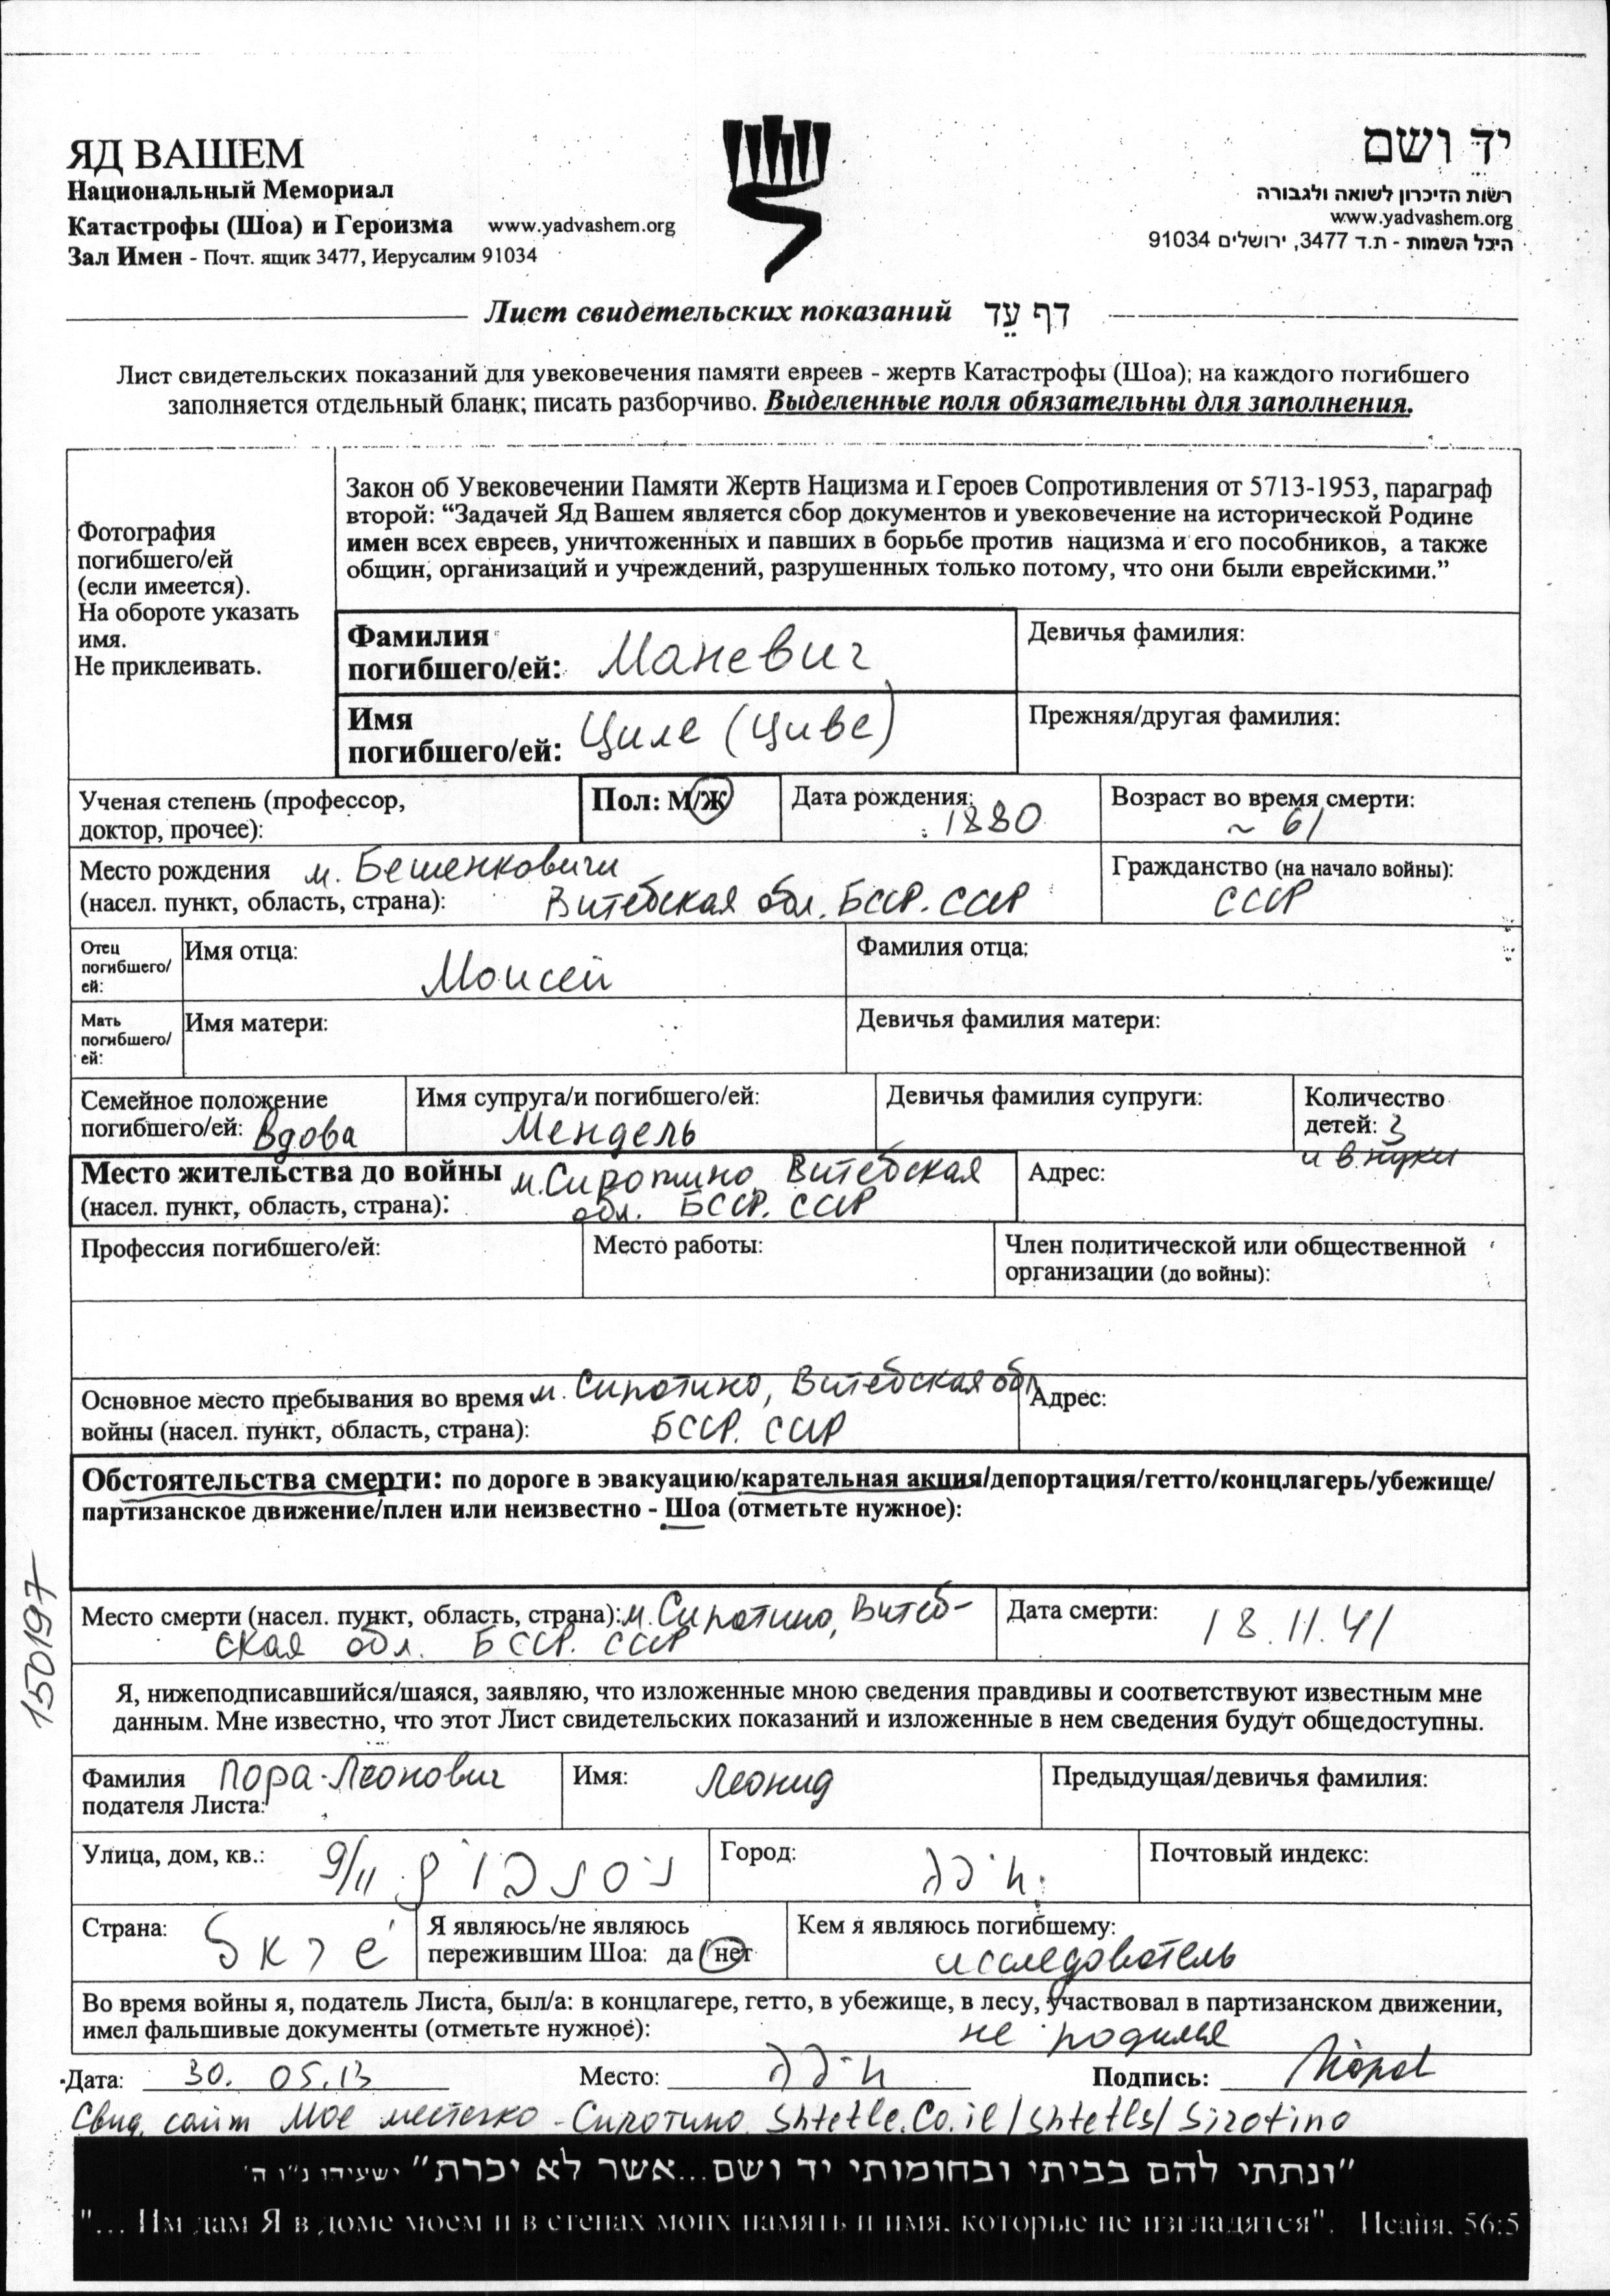 ЯД ВАШЕМ
Национальный Мемориал
Катастрофы (Шоа) и Героизма www.yadvashem.org
Зал Имен - Почт. ящик 3477, Иерусалим 91034
יד ושם
רשות הזיכרון לשואה ולגבורה
www.yadvashem.org
היכל השמות - ת.ד 3477, ירושלים 91034
Лист свидетельских показаний דף עֵד
Лист свидетельских показаний для увековечения памяти евреев - жертв Катастрофы (Шоа); на каждого погибшего
заполняется отдельный бланк; писать разборчиво. Выделенные поля обязательны для заполнения.
Фотография
погибшего/ей
(если имеется).
На обороте указать
имя.
Не приклеивать.
Закон об Увековечении Памяти Жертв Нацизма и Героев Сопротивления от 5713-1953, параграф
второй: “Задачей Яд Вашем является сбор документов и увековечение на исторической Родине
имен всех евреев, уничтоженных и павших в борьбе против нацизма и его пособников, а также
общин, организаций и учреждений, разрушенных только потому, что они были еврейскими.”
Фамилия
погибшего/ей: Маневич
Девичья фамилия:
Имя
погибшего/ей: Циле (Циве)
Прежняя/другая фамилия:
Ученая степень (профессор,
доктор, прочее):
Пол: М/Ж
Дата рождения:
1880
Возраст во время смерти:
~ 61
Место рождения м. Бешенковичи
(насел. пункт, область, страна): Витебская обл. БССР. СССР
Гражданство (на начало войны):
СССР
Отец
погибшего/
ей:
Имя отца:
Моисей
Фамилия отца:
Мать
погибшего/
ей:
Имя матери:
Девичья фамилия матери:
Семейное положение
погибшего/ей: Вдова
Имя супруга/и погибшего/ей:
Мендель
Девичья фамилия супруги:
Количество
детей: 3
и внуки
Место жительства до войны м. Сиротино, Витебская
(насел. пункт, область, страна): обл. БССР. СССР
Адрес:
Профессия погибшего/ей:
Место работы:
Член политической или общественной
организации (до войны):
Основное место пребывания во время м. Сиротино, Витебская обл
войны (насел. пункт, область, страна): БССР. СССР
Адрес:
Обстоятельства смерти: по дороге в эвакуацию/карательная акция/депортация/гетто/концлагерь/убежище/
партизанское движение/плен или неизвестно - Шоа (отметьте нужное):
Место смерти (насел. пункт, область, страна): м. Сиротино, Витеб-
ская обл. БССР. СССР
Дата смерти:
18.11.41
150197
Я, нижеподписавшийся/шаяся, заявляю, что изложенные мною сведения правдивы и соответствуют известным мне
данным. Мне известно, что этот Лист свидетельских показаний и изложенные в нем сведения будут общедоступны.
Фамилия Пора-Леонович
подателя Листа:
Имя: Леонид
Предыдущая/девичья фамилия:
Улица, дом, кв.: 9/11
Город:
Почтовый индекс:
Страна:
Я являюсь/не являюсь
пережившим Шоа: да /нет
Кем я являюсь погибшему:
исследователь
Во время войны я, податель Листа, был/а: в концлагере, гетто, в убежище, в лесу, участвовал в партизанском движении,
имел фальшивые документы (отметьте нужное): не родился
Дата: 30. 05.13 Место: Подпись:
Свид. сайт Мое местечко - Сиротино Shtetle.Co.il/Shtetls/Sirotino
"ונתתי להם בביתי ובחומותי יד ושם...אשר לא יכרת" ישעיהו נ"ו ה'
"... Им дам Я в доме моем и в стенах моих память и имя, которые не изгладятся". Исайя, 56:5